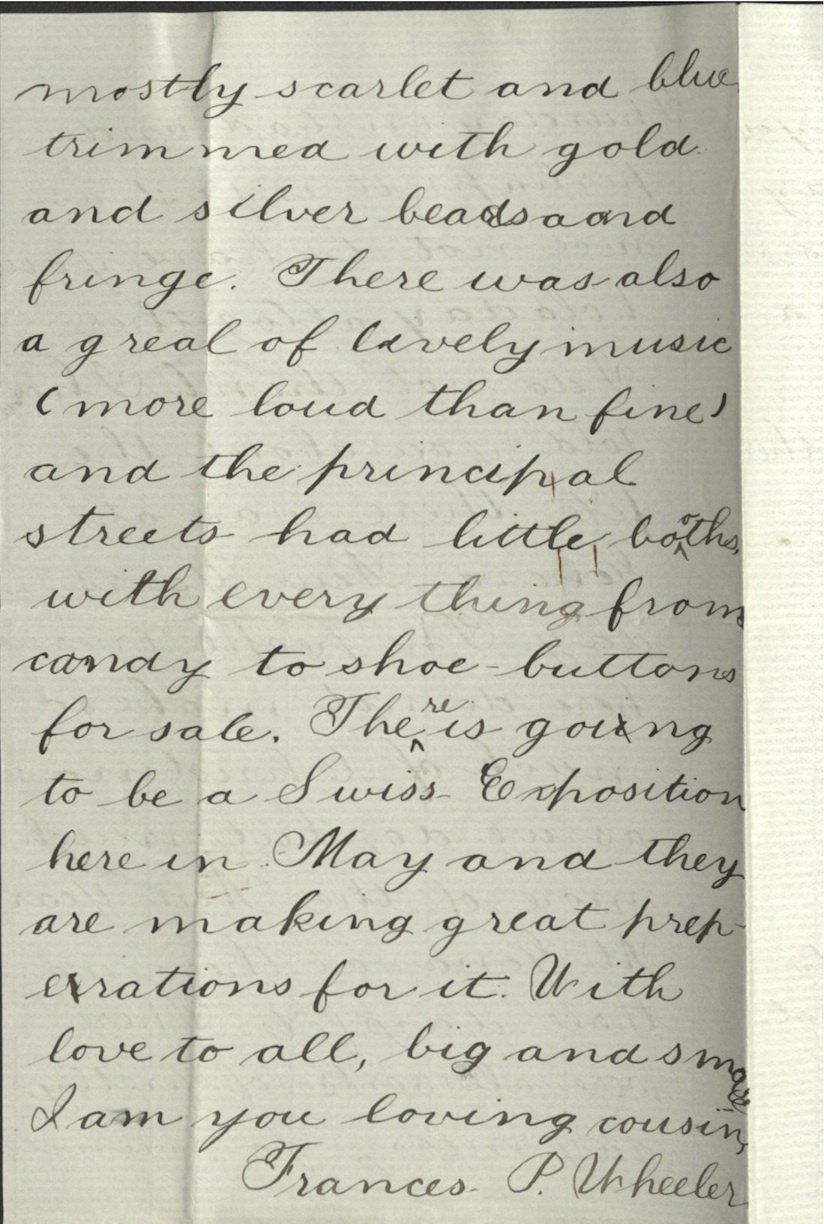 mostly scarlet and blue
trimmed with gold
and silver beads and
fringe. There was also
a greal of lively music
(more loud than fine)
and the principal
streets had little booths,
with every thing from
candy to shoe-buttons
for sale. There is going
to be a Swiss Exposition
here in May and they
are making great prep-
errations for it. With
love to all, big and small
I am you loving cousin,
Frances P. Wheeler